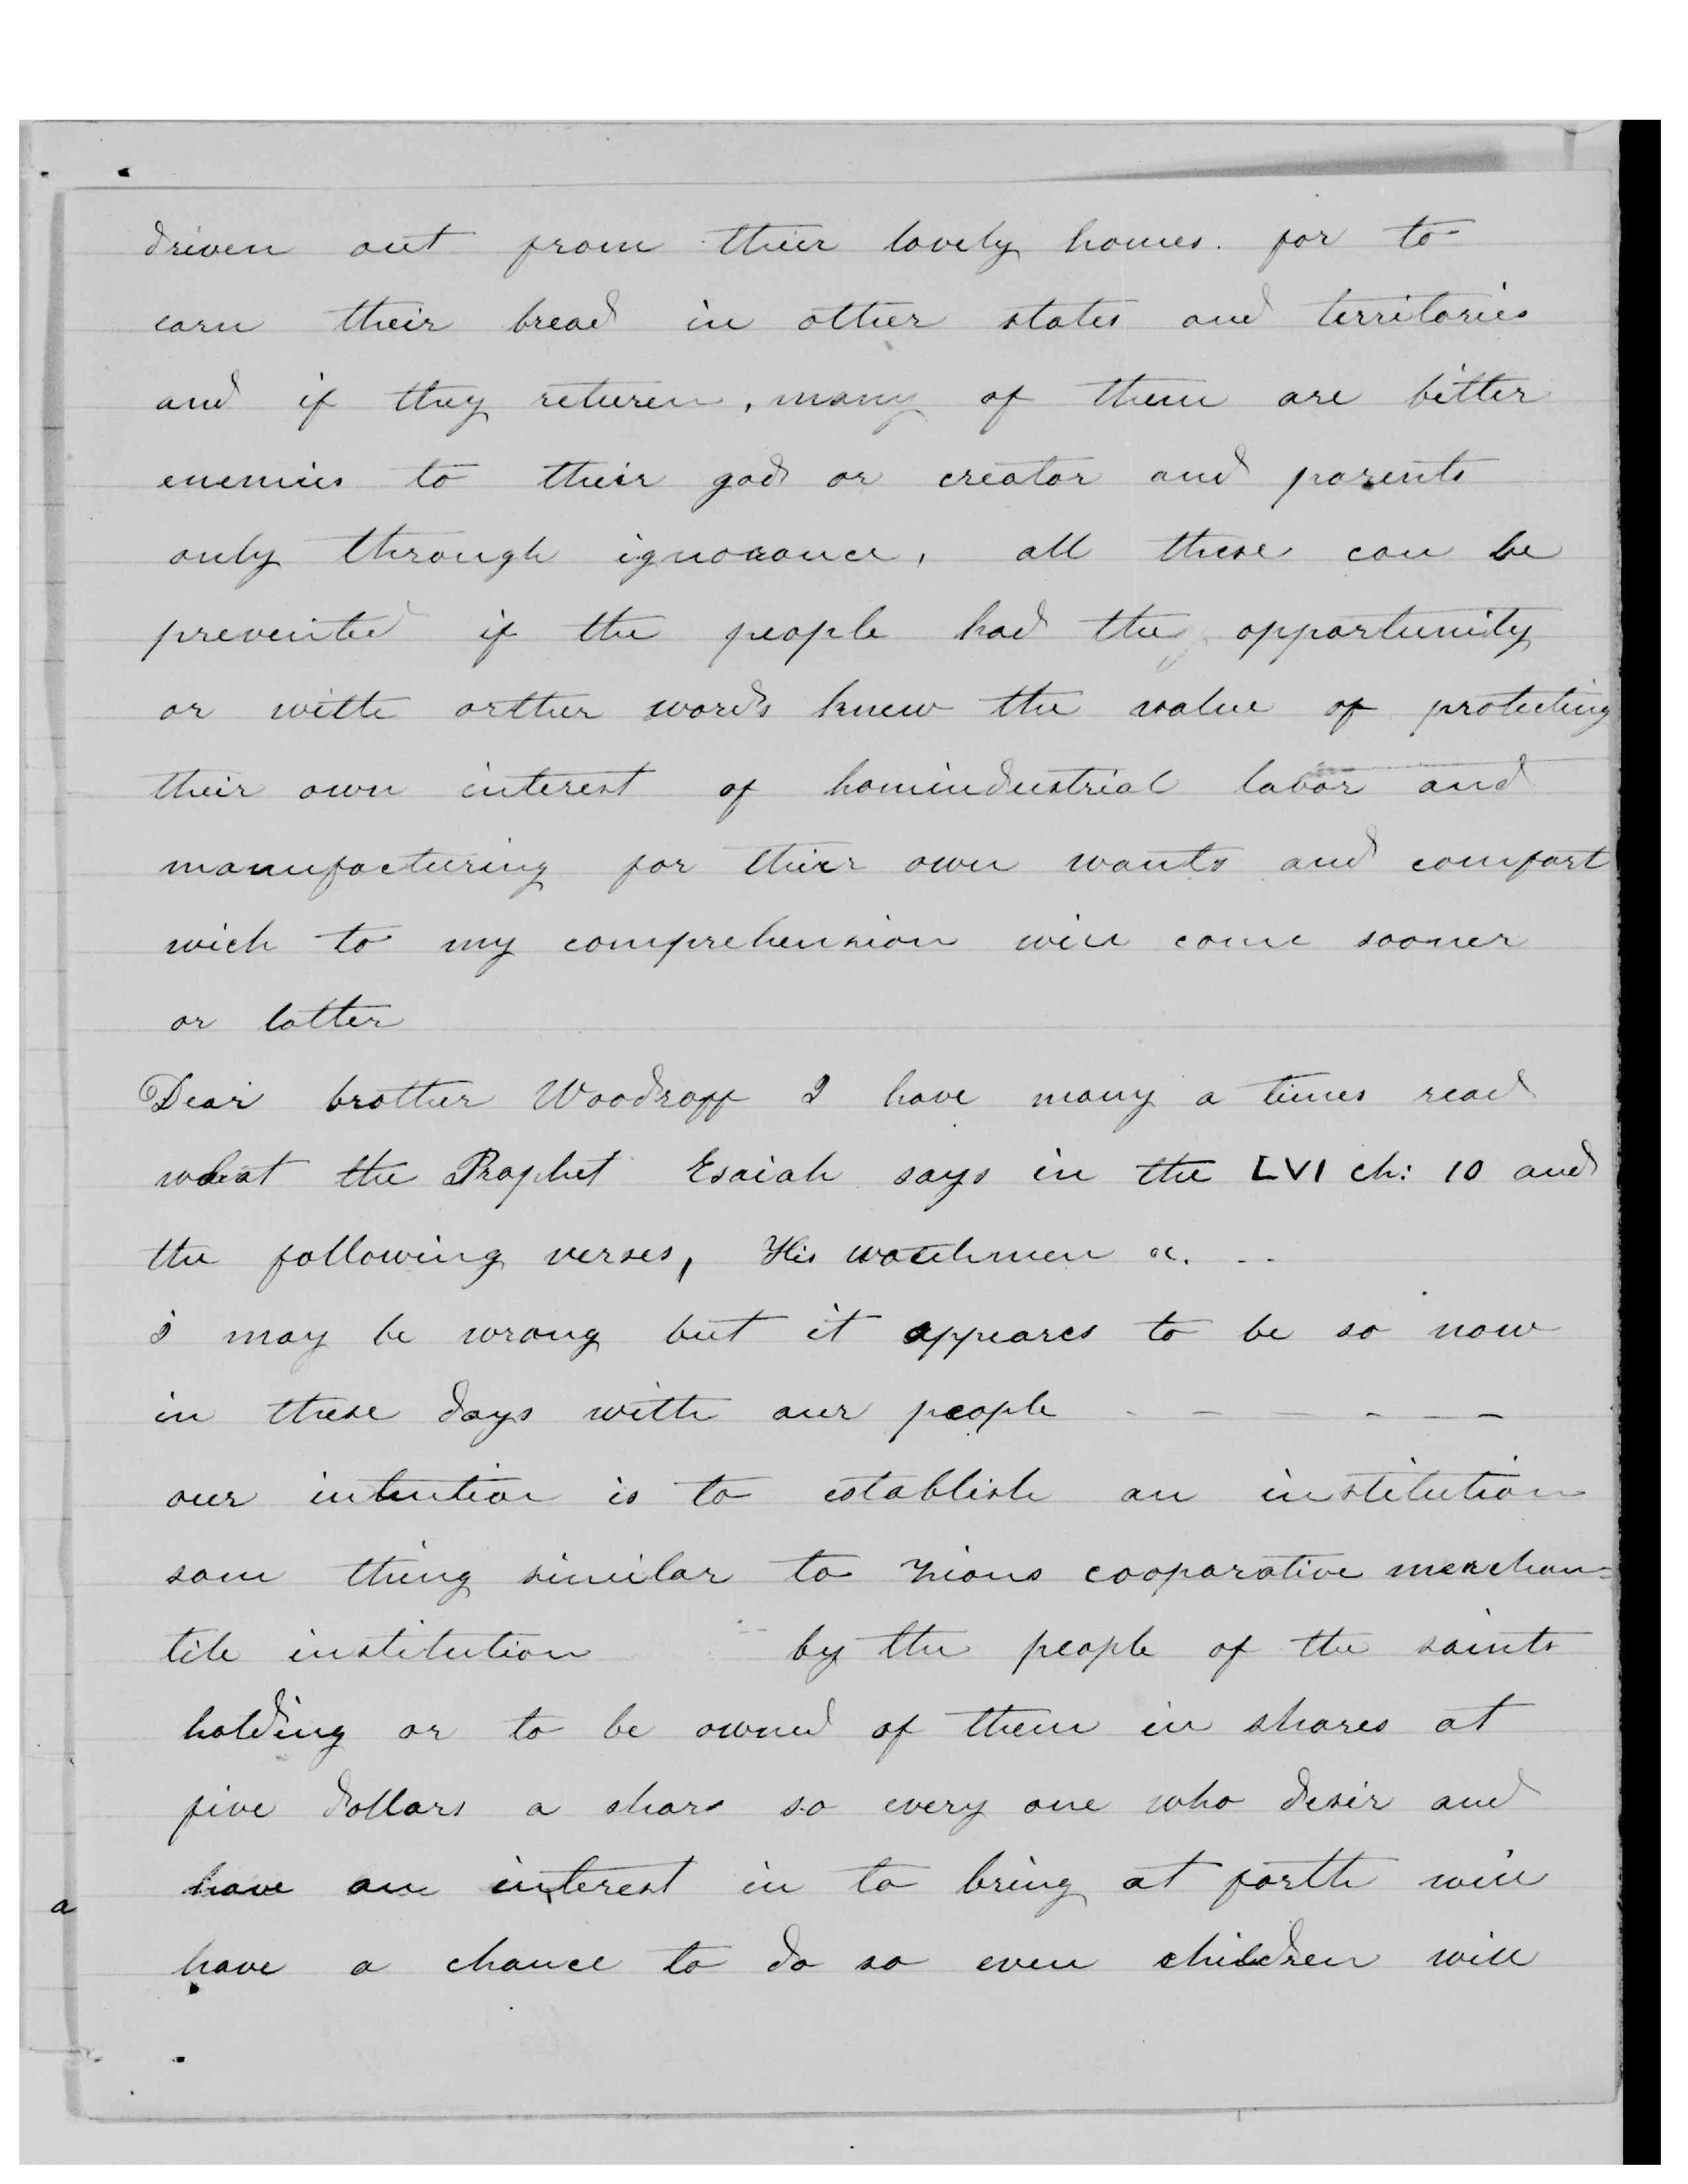 driven out from their lovely homes. for to
earn their bread in other states and territories
and if they returen, many of them are bitter
enemies to their god or creator and parents
only through ignorance, all these can be
prevented if the people had the opportunity
or with orther words knew the value of protecting
their own interest of homindustrial labor and
manufacturing for their own wants and comfort
wich to my comprehension will come sooner
or latter
Dear brother Woodroff I have many a times read
what the Prophet Esaiah says in the LVI ch: 10 and
the following verses, His watchmen &. ..
i may be wrong but it appeares to be so now
in these days with our people - - - - - -
our intention is to establish an institution
som thing similar to zions cooparative merchan=
tile institution by the people of the saints
holding or to be owned of them in shares at
five dollars a share so every one who desir and
have an interest in to bring at forth will
a
have a chance to do so even children will